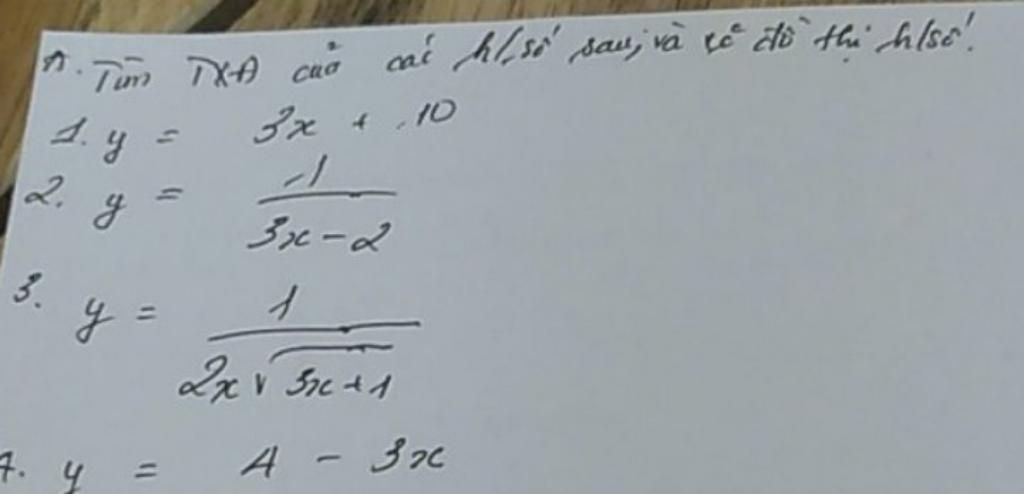 A. Tìm TXĐ của các h/số sau, và vẽ đồ thị h/số.
1. y = 3x + 10
2. y = 1 / (3x - 2)
3. y = 1 / (2x√(3x + 1))
4. y = 4 - 3x